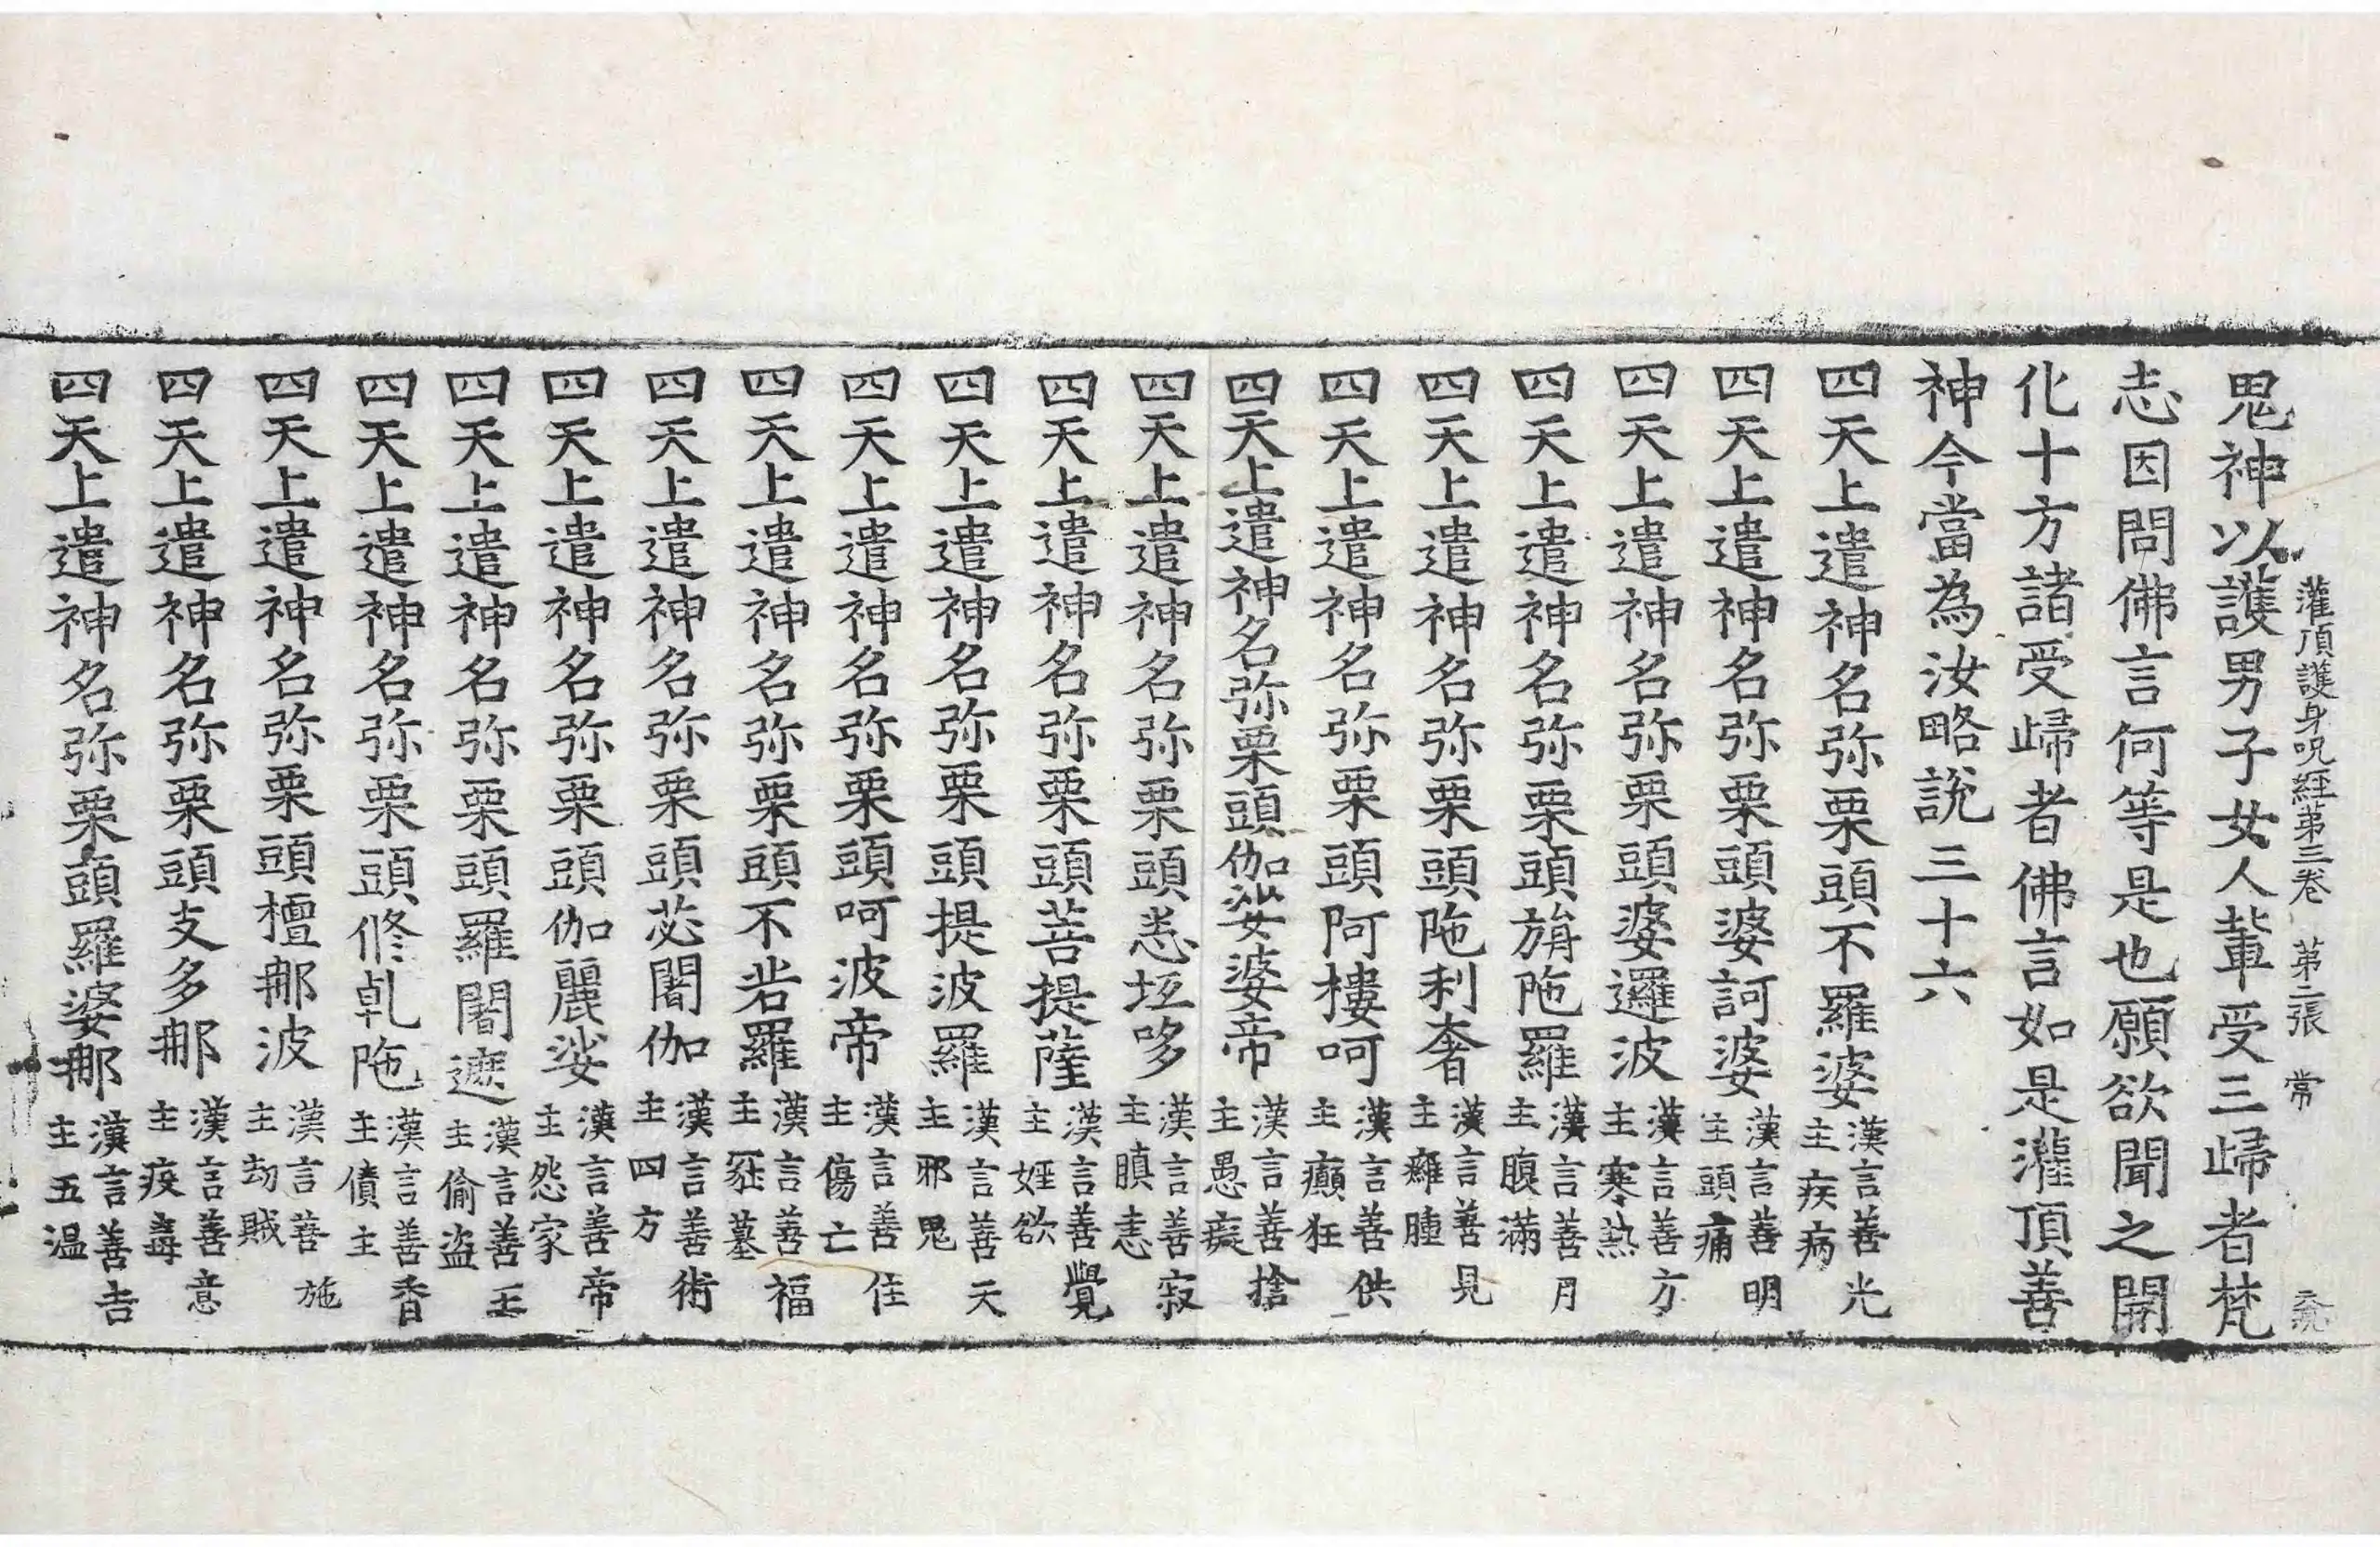 灌頂護身呪經第三卷 第二張 常
鬼神以護男子女人輩受三歸者梵
志因問佛言何等是也願欲聞之開
化十方諸受歸者佛言如是灌頂善
神今當為汝略說三十六
四天上遣神名弥栗頭不羅婆漢言善光主疾病
四天上遣神名弥栗頭婆訶婆漢言善明主頭痛
四天上遣神名弥栗頭婆邏波漢言善方主寒熱
四天上遣神名弥栗頭旃陁羅漢言善月主腹滿
四天上遣神名弥栗頭陁利奢漢言善見主癰腫
四天上遣神名弥栗頭阿樓呵漢言善供主癲狂
四天上遣神名弥栗頭伽娑婆帝漢言善捨主愚癡
四天上遣神名弥栗頭悉坻哆漢言善寂主瞋恚
四天上遣神名弥栗頭菩提薩漢言善覺主婬欲
四天上遣神名弥栗頭提波羅漢言善天主邪鬼
四天上遣神名弥栗頭呵波帝漢言善住主傷亡
四天上遣神名弥栗頭不若羅漢言善福主冢墓
四天上遣神名弥栗頭苾闍伽漢言善術主四方
四天上遣神名弥栗頭伽麗娑漢言善帝主怨家
四天上遣神名弥栗頭羅闍遮漢言善王主偷盜
四天上遣神名弥栗頭修乹陁漢言善香主債主
四天上遣神名弥栗頭檀那波漢言善施主劫賊
四天上遣神名弥栗頭支多那漢言善意主疫毒
四天上遣神名弥栗頭羅婆那漢言善吉主五温